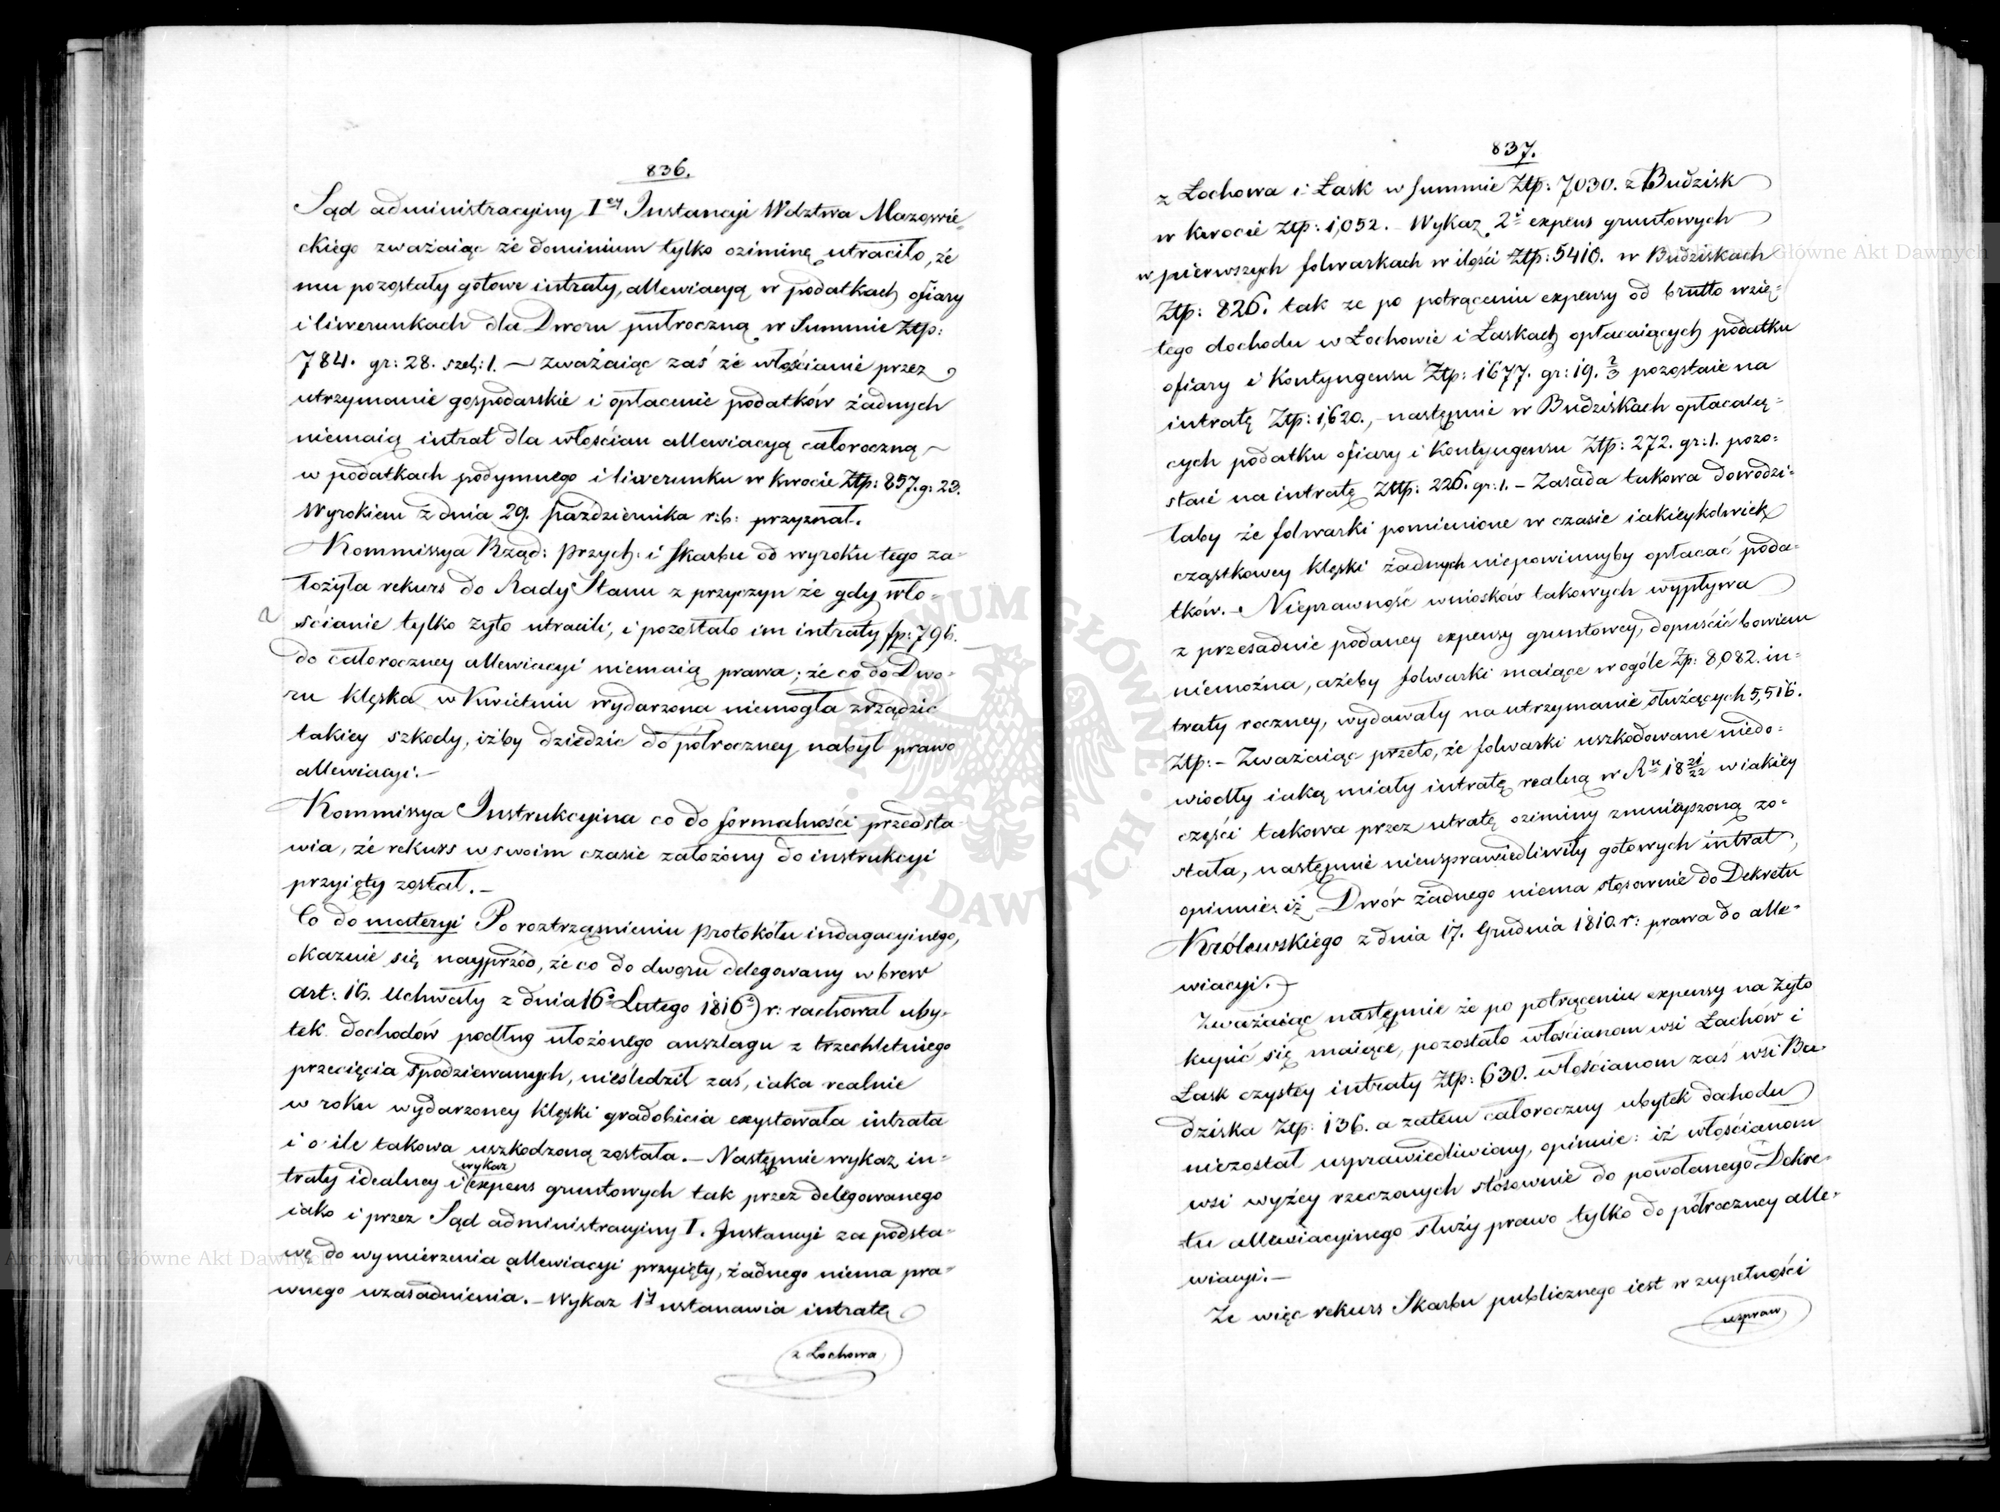 836.
Sąd administracyiny I<sup>ey</sup> Instancyi Wdztwa Mazowie-
ckiego zważaiąc że dominium tylko oziminę utraciło, że
mu pozostały gotowe intraty, allewiacyą w podatkach ofiary
i liwerunkach dla Dworu pułroczną w Summie Ztp:
784. gr: 28. szel: 1. — zważaiąc zaś że włościanie przez
utrzymanie gospodarskie i opłacenie podatków żadnych
niemaią intrat dla włościan allewiacyą całoroczną
w podatkach podymnego i liwerunku w kwocie Ztp: 857. g: 23.
Wyrokiem z dnia 29. Października r: b: przyznał.
Kommissya Rząd: Przych: i Skarbu od wyroku tego za-
łożyła rekurs do Rady Stanu z przyczyn że gdy wło-
ścianie tylko żyto utracili, i pozostało im intraty fp: 796.
do całoroczney allewiacyi niemaią prawa; że co do Dwo-
ru klęska w Kwietniu wydarzona niemogła zrządzić
takiey szkody, iżby dziedzic do półroczney nabył prawo
allewiacyi. —
Kommissya Instrukcyina co do formalności przedsta-
wia, że rekurs w swoim czasie założony do instrukcyi
przyięty został. —
Co do materyi Po roztrząśnieniu protokółu indagacyinego,
okazuie się nayprzód, że co do dworu delegowany wbrew
art: 16. Uchwały z dnia 16º Lutego 1816) r: rachował uby-
tek dochodów podług ułożonego anszlagu z trzechletniego
przecięcia spodziewanych, nieśledził zaś, iaka realnie
w roku wydarzoney klęski gradobicia exystowała intrata
i o ile takowa uszkodzoną została. — Następnie wykaz in-
traty idealney i (wykaz) expens gruntowych tak przez delegowanego
iako i przez Sąd administracyiny I. Instancyi za podsta-
wę do wymierzenia allewiacyi przyięty, żadnego niema pra-
wnego uzasadnienia. — Wykaz 1y ustanawia intratę
z Łochowa
837.
z Łochowa i Łask w summie Ztp: 7030. z Budzisk
w kwocie Ztp: 1,052. — Wykaz 2i expens gruntowych
w pierwszych folwarkach w ilości Ztp: 5410. w Budziskach
Ztp: 826. tak że po potrąceniu expensy od brutto wzię-
tego dochodu w Łochowie i Łaskach opłacaiących podatku
ofiary i Kontyngensu Ztp: 1677. gr: 19. 2/3 pozostaie na
intratę Ztp: 1,620., następnie w Budziskach opłacaią-
cych podatku ofiary i Kontyngensu Ztp: 272. gr: 1. pozo-
staie na intratę Ztp: 226. gr: 1. — Zasada takowa dowodzi-
łaby że folwarki pomienione w czasie iakieykolwiek
cząstkowey klęski żadnych niepowinnyby opłacać poda-
tków. — Nieprawność wniosków takowych wypływa
z przesadnie podaney expensy gruntowey, dopuścić bowiem
niemożna, ażeby folwarki maiące w ogóle Zp: 8,082. in-
traty roczney, wydawały na utrzymanie służących 5,516.
Ztp: — Zważaiąc przeto, że folwarki uszkodowane niedo-
wiodły iaką miały intratę realną w Ru 18 21/22 w iakiey
części takowa przez utratę oziminy zmnieyszoną zo-
stała, następnie nieusprawiedliwiły gotowych intrat,
opiniuie iż Dwór żadnego niema stosownie do Dekretu
Królewskiego z dnia 17. Grudnia 1810. r: prawa do alle-
wiacyi. —
Zważaiąc następnie że po potrąceniu expensy na żyto
kupić się maiące, pozostało włościanom wsi Łachów i
Łask czystey intraty Ztp: 630. włościanom zaś wsi Bu-
dziska Ztp: 136. a zatem całoroczny ubytek dochodu
niezostał usprawiedliwiony, opiniuie: iż włościanom
wsi wyżey rzeczonych stósownie do powołanego Dekre-
tu allewiacyinego służy prawo tylko do półroczney alle-
wiacyi. —
Że więc rekurs Skarbu publicznego iest w zupełności
uspraw